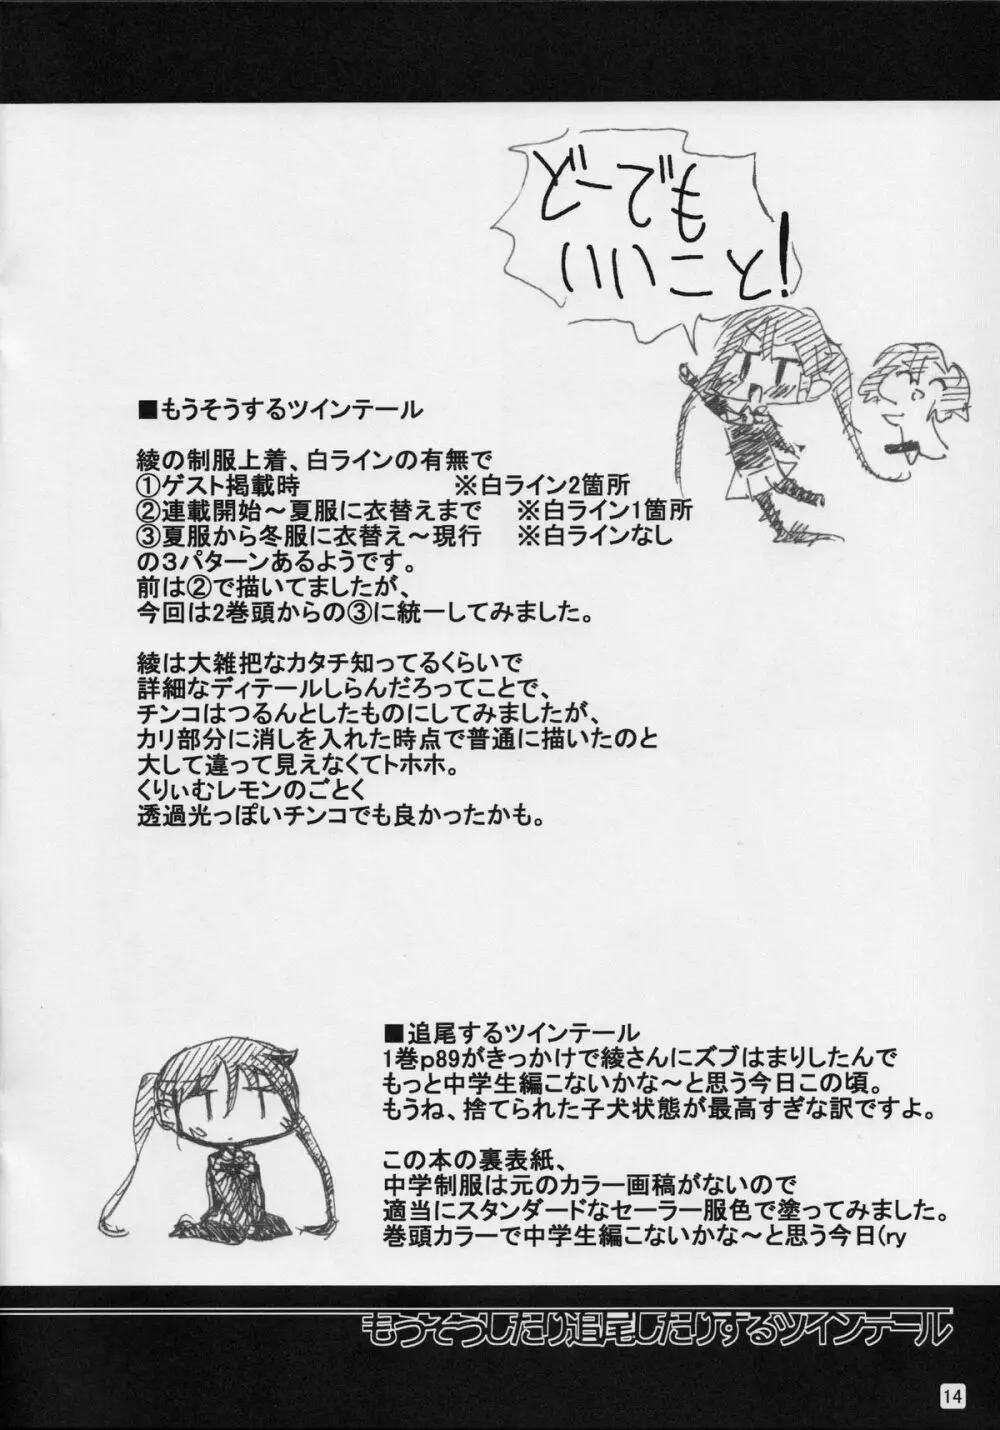 どーでも
いいこと!
■もうそうするツインテール
綾の制服上着、白ラインの有無で
①ゲスト掲載時 ※白ライン2箇所
②連載開始～夏服に衣替えまで ※白ライン1箇所
③夏服から冬服に衣替え～現行 ※白ラインなし
の３パターンあるようです。
前は②で描いてましたが、
今回は2巻頭からの③に統一してみました。
綾は大雑把なカタチ知ってるくらいで
詳細なディテールしらんだろってことで、
チンコはつるんとしたものにしてみましたが、
カリ部分に消しを入れた時点で普通に描いたのと
大して違って見えなくてトホホ。
くりぃむレモンのごとく
透過光っぽいチンコでも良かったかも。
■追尾するツインテール
1巻p89がきっかけで綾さんにズブはまりしたんで
もっと中学生編こないかな～と思う今日この頃。
もうね、捨てられた子犬状態が最高すぎな訳ですよ。
この本の裏表紙、
中学制服は元のカラー画稿がないので
適当にスタンダードなセーラー服色で塗ってみました。
巻頭カラーで中学生編こないかな～と思う今日(ry
もうそうしたり追尾したりするツインテール
14